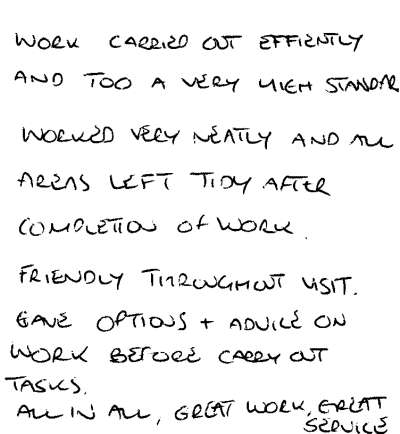 WORK CARRIED OUT EFFIENTLY
AND TOO A VERY HIGH STANDAR
WORKED VERY NEATLY AND ALL
AREAS LEFT TIDY AFTER
COMPLETION OF WORK.
FRIENDLY THROUGHOUT VISIT.
GAVE OPTIONS + ADVICE ON
WORK BEFORE CARRY OUT
TASKS.
ALL IN ALL, GREAT WORK, GREAT
SERVICE